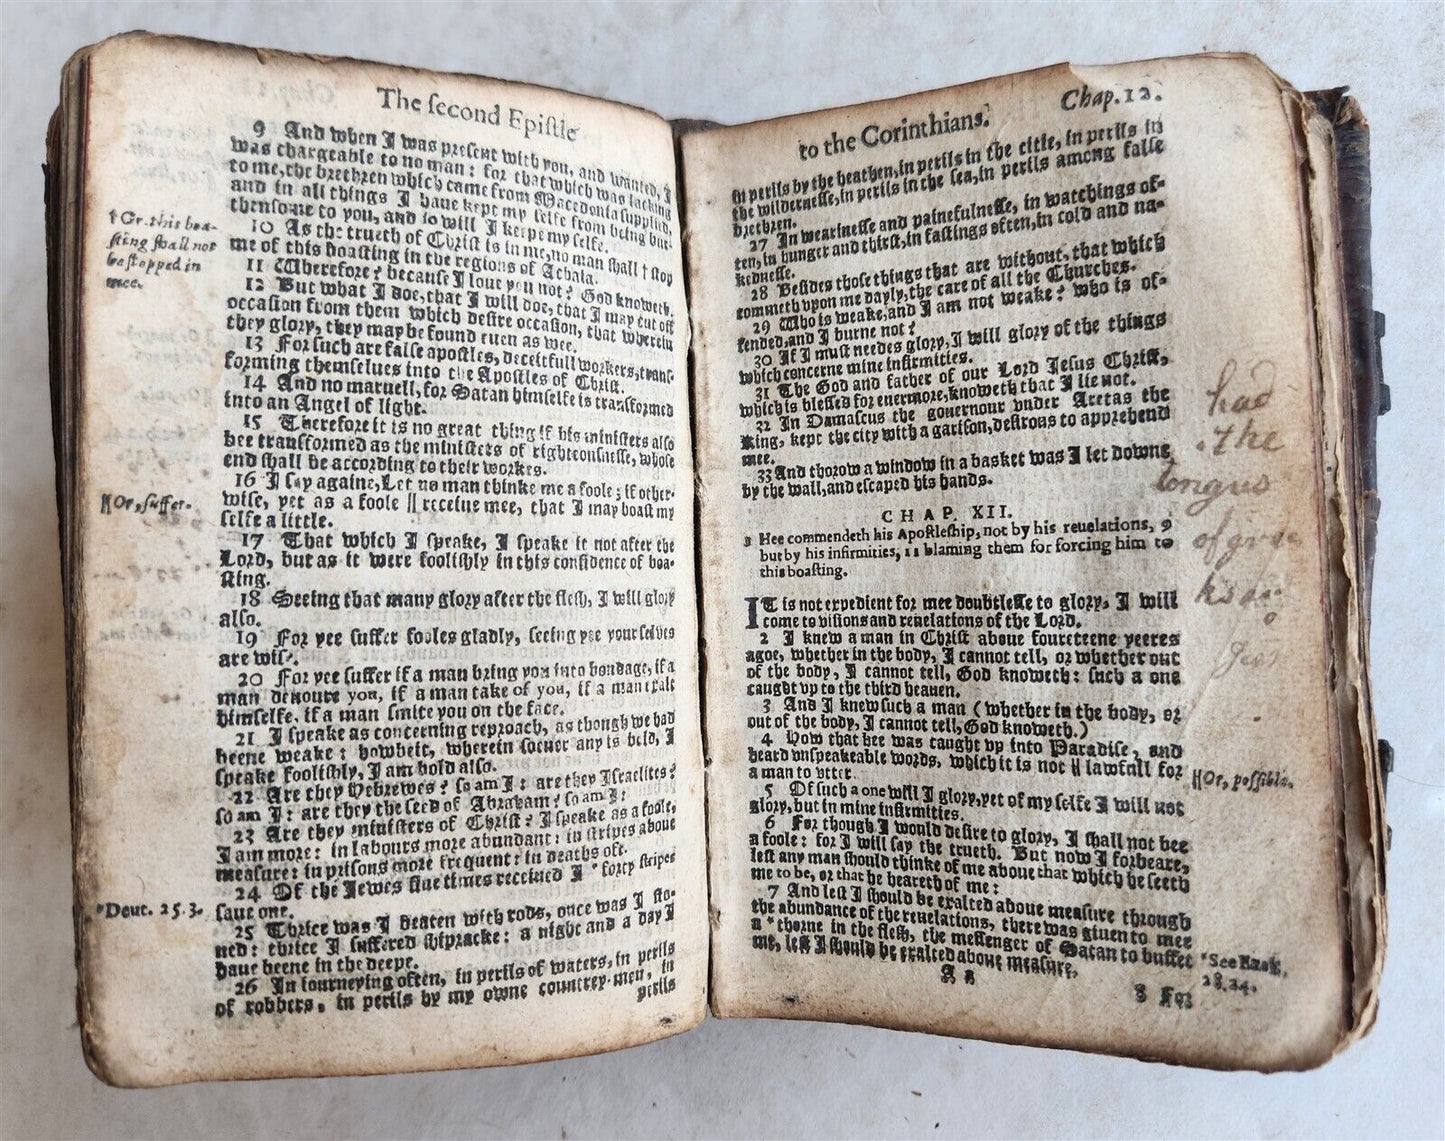 The ſecond Epiſtle
9 And when I was preſent with you, and wanted, I
was chargeable to no man: for that which was lacking
to me, the brethren which came from Macedonia ſupplied,
and in all things I haue kept my ſelfe from being bur-
thenſome to you, and ſo will I keepe my ſelfe.
10 As the trueth of Chriſt is in me, no man ſhall † ſtop
me of this boaſting in the regions of Achaia.
†Or, this boa-
ſting ſhall not
be ſtopped in
mee.
11 Wherefore? becauſe I loue you not? God knoweth.
12 But what I doe, that I will doe, that I may cut off
occaſion from them which deſire occaſion, that wherein
they glory, they may be found euen as wee.
13 For ſuch are falſe apoſtles, deceitfull workers, tranſ-
forming themſelues into the Apoſtles of Chriſt.
14 And no maruell, for Satan himſelfe is tranſformed
into an Angel of light.
15 Therefore it is no great thing if his miniſters alſo
bee tranſformed as the miniſters of righteouſneſſe, whoſe
end ſhall be according to their workes.
16 I ſay againe, Let no man thinke me a foole; if other-
wiſe, yet as a foole || receiue mee, that I may boaſt my
ſelfe a little.
||Or, ſuffer.
17 That which I ſpeake, I ſpeake it not after the
Lord, but as it were fooliſhly in this confidence of boa-
ſting.
18 Seeing that many glory after the fleſh, I will glory
alſo.
19 For yee ſuffer fooles gladly, ſeeing yee your ſelues
are wiſe.
20 For yee ſuffer if a man bring you into bondage, if a
man deuoure you, if a man take of you, if a man exalt
himſelfe, if a man ſmite you on the face.
21 I ſpeake as concerning reproach, as though we had
beene weake: howbeit, wherein ſoeuer any is bold, I
ſpeake fooliſhly, I am bold alſo.
22 Are they Hebrewes? ſo am I: are they Iſraelites?
ſo am I: are they the ſeed of Abraham? ſo am I:
23 Are they miniſters of Chriſt? I ſpeake as a foole,
I am more: in labours more abundant: in ſtripes aboue
meaſure: in priſons more frequent: in deaths oft.
24 Of the Jewes fiue times receiued I * forty ſtripes
ſaue one.
*Deut. 25.3.
25 Thrice was I beaten with rods, once was I ſto-
ned: thrice I ſuffered ſhipracke: a night and a day I
haue beene in the deepe.
26 In iourneying often, in perils of waters, in perils
of robbers, in perils by my owne countrey-men, in
perils
to the Corinthians. Chap.12.
in perils by the heathen, in perils in the citie, in perils in
the wilderneſſe, in perils in the ſea, in perils among falſe
brethren.
27 In wearineſſe and painefulneſſe, in watchings of-
ten, in hunger and thirſt, in faſtings often, in cold and na-
kedneſſe.
28 Beſides thoſe things that are without, that which
commeth vpon me dayly, the care of all the Churches.
29 Who is weake, and I am not weake? who is of-
fended, and I burne not?
30 If I muſt needes glory, I will glory of the things
which concerne mine infirmities.
31 The God and father of our Lord Jeſus Chriſt,
which is bleſſed for euermore, knoweth that I lie not.
32 In Damaſcus the gouernour vnder Aretas the
King, kept the city with a gariſon, deſirous to apprehend
mee.
33 And thorow a window in a basket was I let downe
by the wall, and eſcaped his hands.
had
the
tongus
of
CHAP. XII.
1 Hee commendeth his Apoſtleſhip, not by his reuelations, 9
but by his infirmities, 11 blaming them for forcing him to
this boaſting.
IT is not expedient for mee doubtleſſe to glory, I will
come to viſions and reuelations of the Lord.
2 I knew a man in Chriſt aboue foureteene yeeres
agoe, whether in the body, I cannot tell, or whether out
of the body, I cannot tell, God knoweth: ſuch a one
caught vp to the third heauen.
3 And I knew ſuch a man (whether in the body, or
out of the body, I cannot tell, God knoweth.)
4 How that hee was caught vp into Paradiſe, and
heard vnſpeakeable words, which it is not || lawfull for
a man to vtter.
||Or, poſſible.
5 Of ſuch a one will I glory, yet of my ſelfe I will not
glory, but in mine infirmities.
6 For though I would deſire to glory, I ſhall not bee
a foole: for I will ſay the trueth. But now I forbeare,
leſt any man ſhould thinke of me aboue that which he ſeeth
me to be, or that he heareth of me:
7 And leſt I ſhould be exalted aboue meaſure through
the abundance of the reuelations, there was giuen to mee
a * thorne in the fleſh, the meſſenger of Satan to buffet
me, leſt I ſhould be exalted aboue meaſure.
*See Ezek.
28.24.
A a
8 For